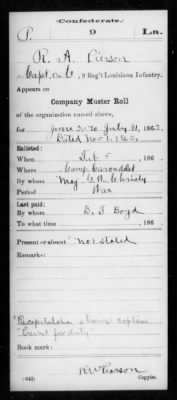 Confederate.
P. 9 La.
R. A. Pierson
Capt, Co. C, 9 Reg't Louisiana Infantry.
Appears on
Company Muster Roll
of the organization named above,
for June 30 to July 31, 1863.
Dated Nov 1, 186
Enlisted:
When Feb 5, 186
Where Camp Carondelet
By whom Maj.
Period War
Last paid:
By whom D. F. Boyd
To what time , 186
Present or absent Not stated
Remarks:
Recapitulation shows captain
for duty
Book mark:
Pierson
(642) Copyist.